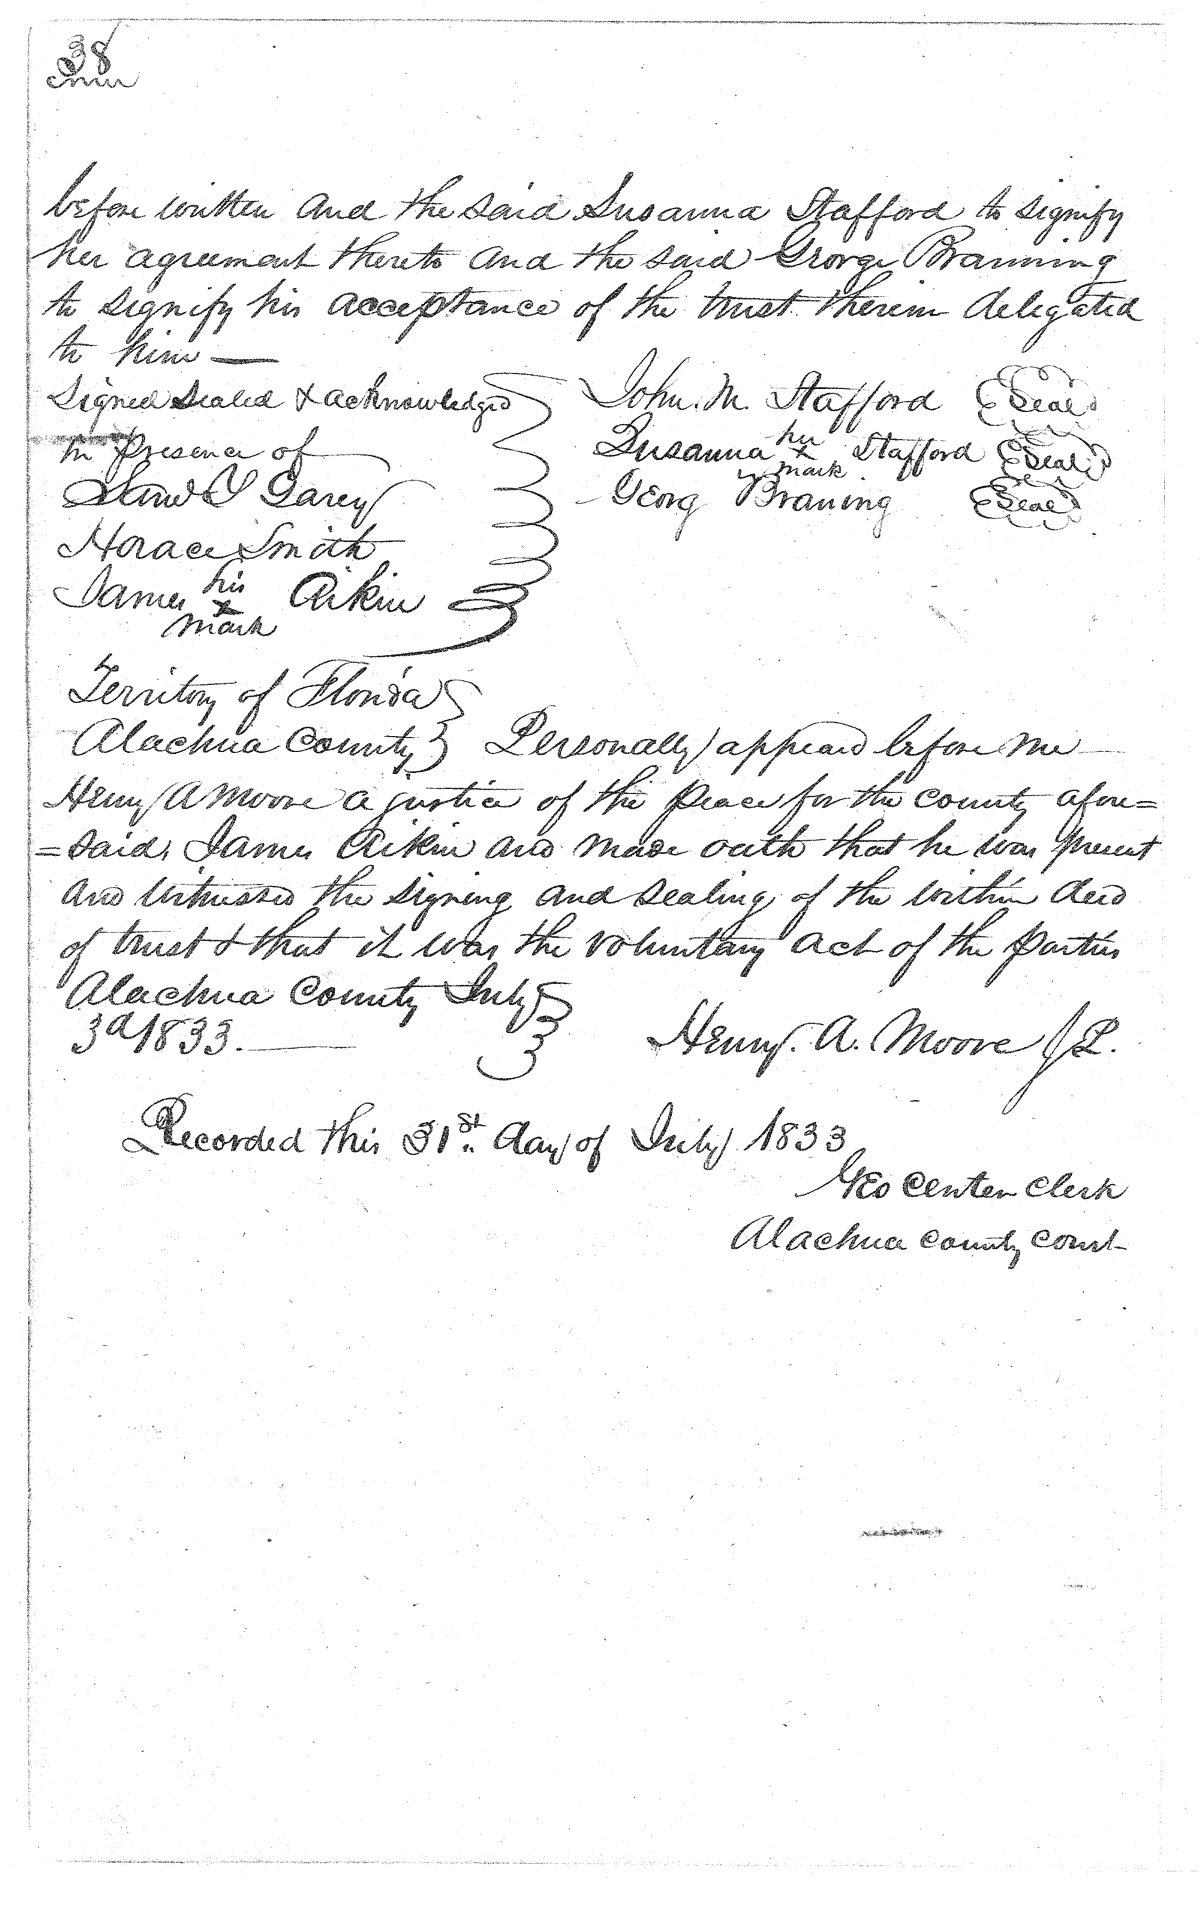 38
before written and the said Susanna Stafford to signify
her agreement thereto and the said George Branning
to signify his acceptance of the trust therein delegated
to him —
Signed Sealed & acknowledged
in presence of
Garey
Horace Smith
James his x mark Aikin
John. M. Stafford Seal
Susanna her x mark Stafford Seal
Georg Braning Seal
Territory of Florida
Alachua County Personally appeard before me
Henry A Moore a justice of the peace for the county afore=
=said, James Aikin and made oath that he was present
and witnessed the signing and sealing of the within deed
of trust & that it was the voluntary act of the parties
Alachua County July
3d 1833.
Henry. A. Moore J P.
Recorded this 31st day of July 1833
Geo Center Clerk
Alachua County Court